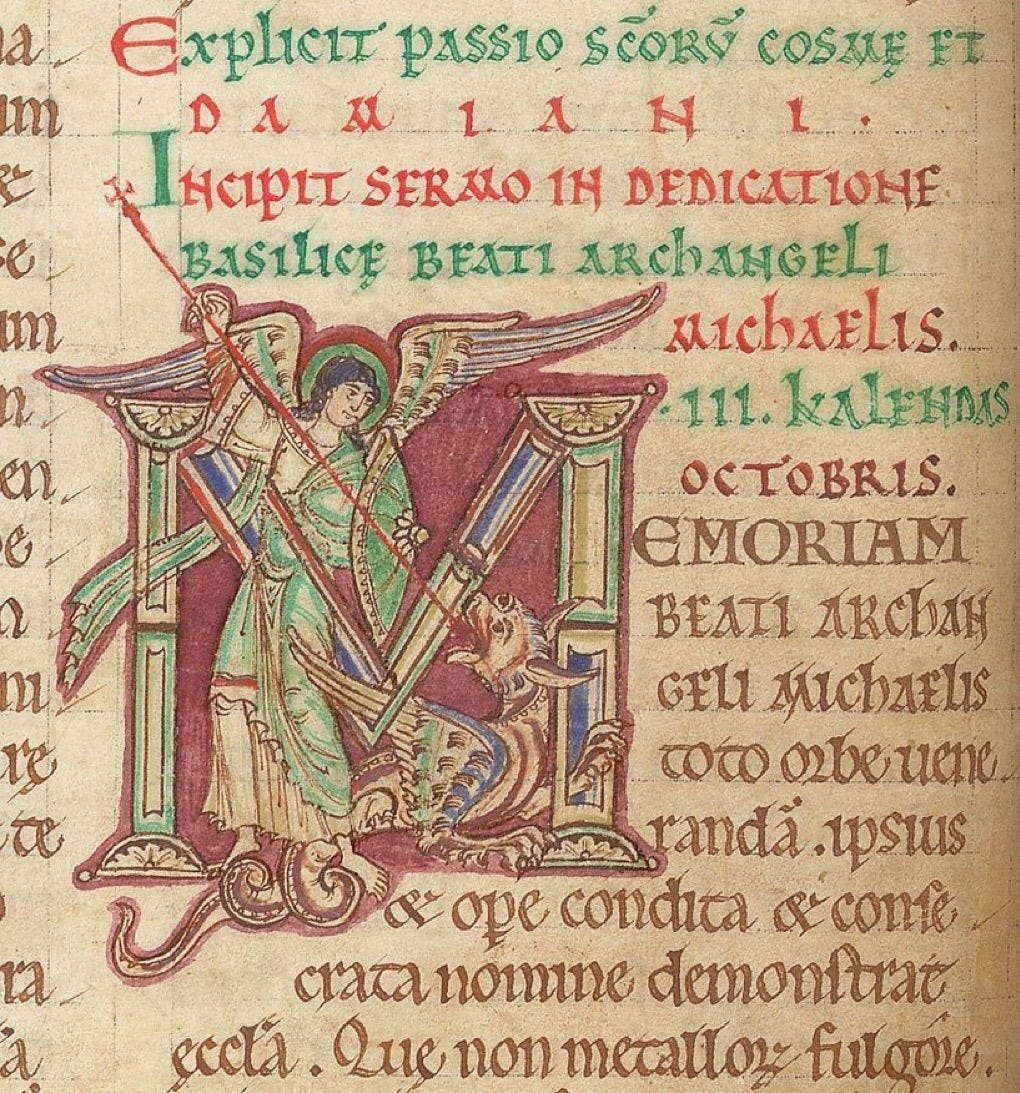 Explicit passio scōrū cosmę et
DAMIANI.
Incipit sermo in dedicatione
basilicę beati archangeli
michaelis.
·III. kalendas
octobris.
MEMORIAM
beati archan
geli michaelis
toto orbe uene
randā. ipsius
& ope condita & conse
crata nomine demonstrat
ęcclā. Quę non metalloꝝ fulgore.